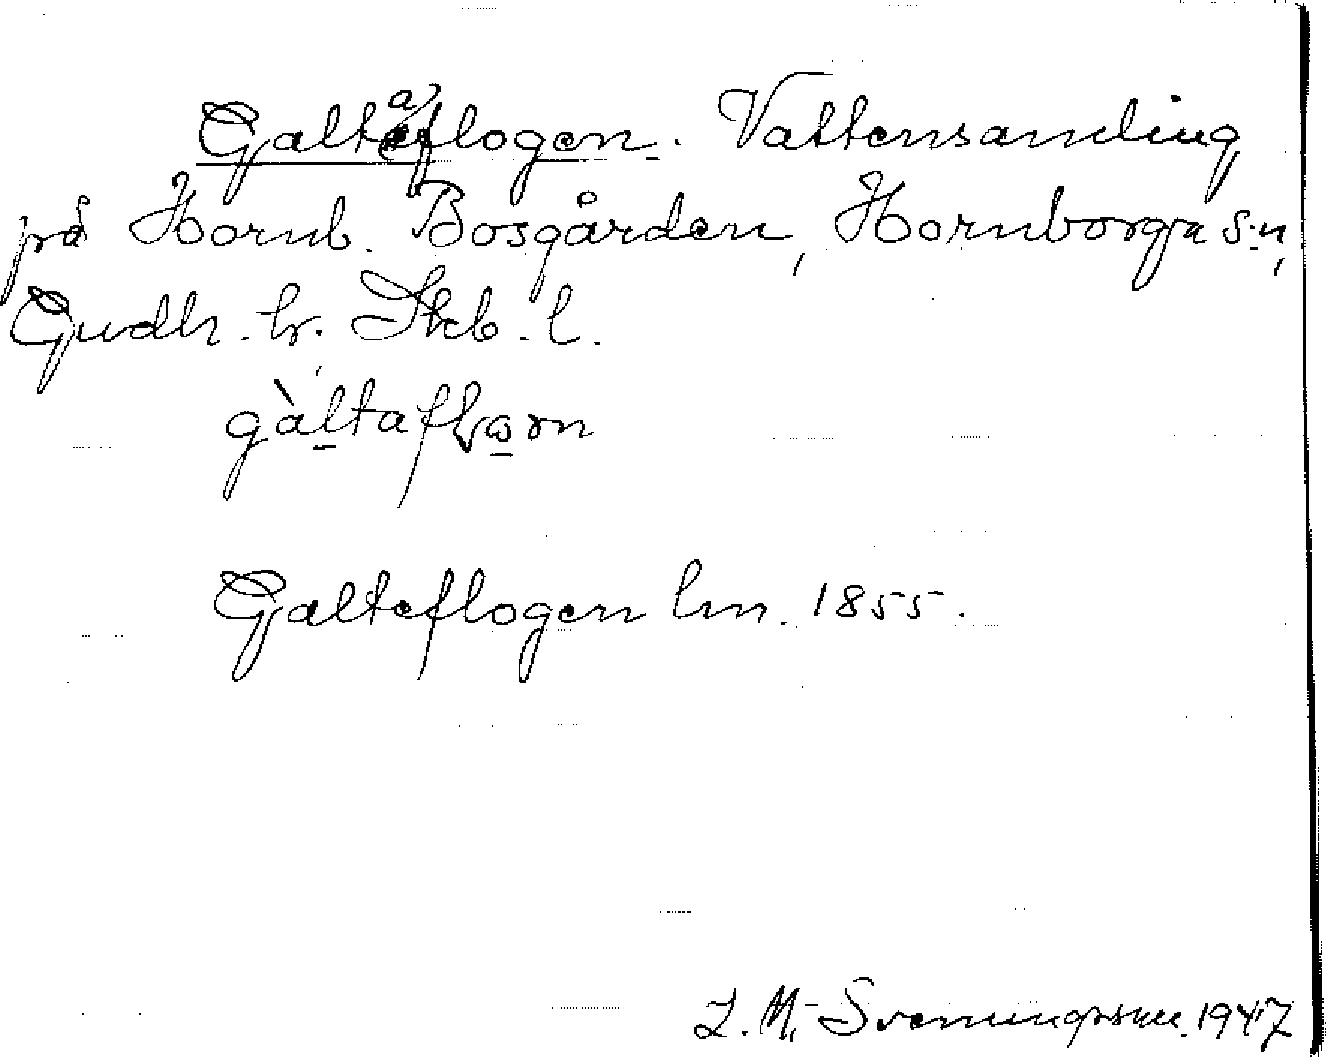 Galtaflogen. Vattensamling
på Hornb. Bosgården, Hornborga s:n,
Gudh. hr. Skb. l.
gàltaflɷɤn
Galteflogen lm. 1855.
J. M. Svenungsson 1947